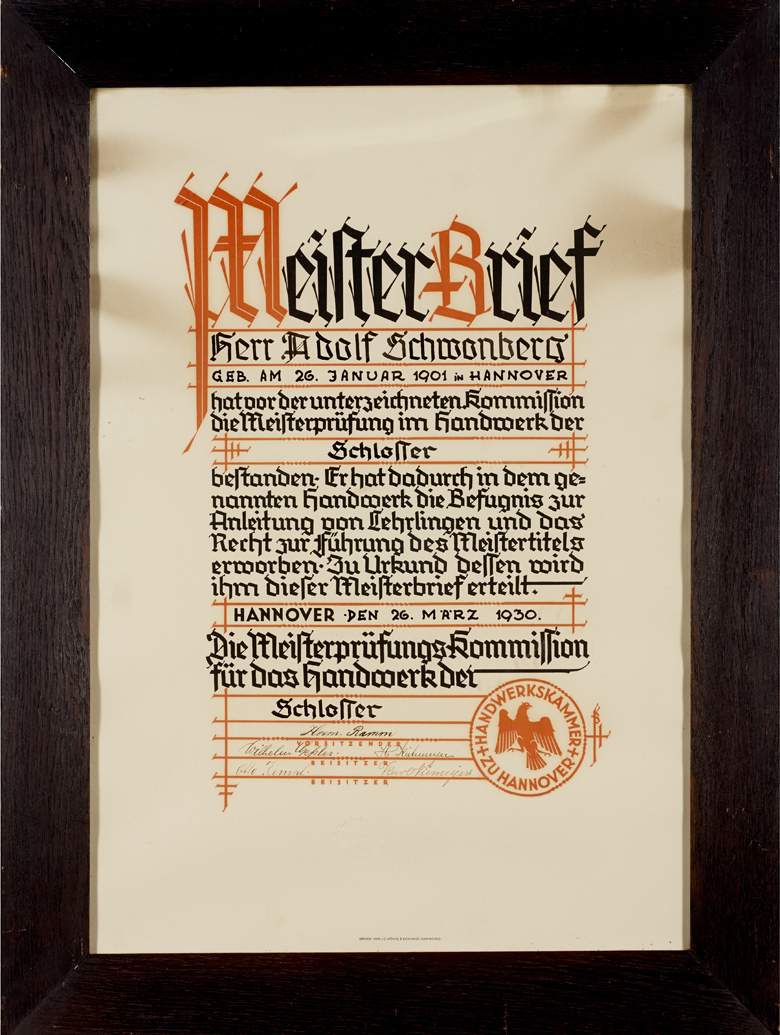 MeisterBrief
Herr Adolf Schwonberg
GEB. AM 26. JANUAR 1901 in HANNOVER
hat vor der unterzeichneten Kommission
die Meisterprüfung im Handwerk der
Schlosser
bestanden. Er hat dadurch in dem ge=
nannten Handwerk die Befugnis zur
Anleitung von Lehrlingen und das
Recht zur Führung des Meistertitels
erworben. Zu Urkund dessen wird
ihm dieser Meisterbrief erteilt.
HANNOVER · DEN 26. MÄRZ 1930.
Die Meisterprüfungs-Kommission
für das Handwerk der
Schlosser
Herm. Ramm
VORSITZENDER
Wilhelm
BEISITZER
Otto
BEISITZER
HANDWERKSKAMMER
ZU HANNOVER